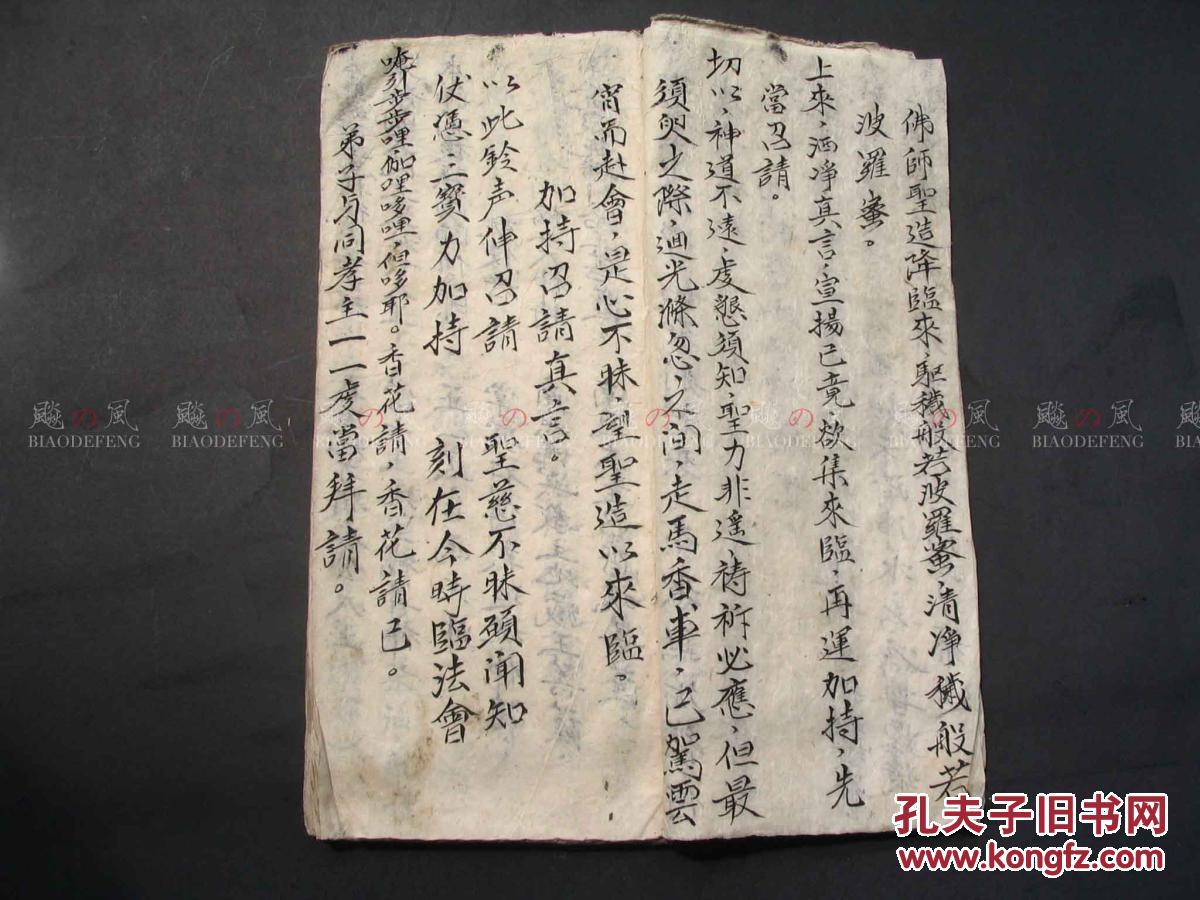 佛師聖造降臨來、駆穢般若波羅蜜、清净穢般若
波羅蜜。
上來、洒净真言、宣揚已竟、欲集來臨、再運加持、先
當召請。
切以、神道不遠、虔懇須知、聖力非遥、祷祈必應、但最
須臾之際、廻光滌忽之间、走馬香車、已駕雲
霄而赴會、是心不昧、聖造以來臨。
加持召請真言。
以此鈴声伸召請 聖慈不昧願闻知
仗憑三寳力加持 刻在今時臨法會
唵引步步哩伽哩哆哩、怛哆耶。香花請、香花請已。
弟子与同孝主一一虔當拜請。
飈の風
BIAODEFENG
飈の風
BIAODEFENG
飈の風
BIAODEFENG
飈の風
BIAODEFENG
孔夫子旧书网
www.kongfz.com